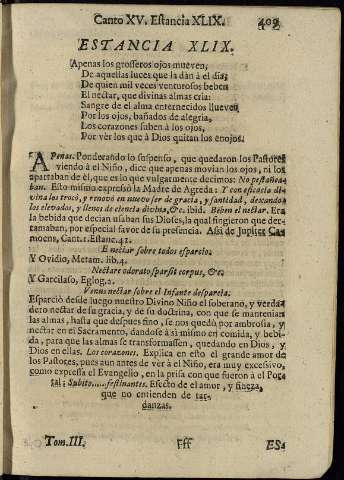 Canto XV. Estancia XLIX. 409
ESTANCIA XLIX.
Apenas los grosseros ojos mueven,
De aquellas luces que la dàn à el dia;
De quien mil veces venturosos beben
El nectar, que divinas almas cria:
Sangre de el alma enternecidos llueven
Por los ojos, bañados de alegria,
Los corazones suben à los ojos,
Por vèr los que à Dios quitan los enojos.
Apenas. Ponderando lo suspenso, que quedaron los Pastores
viendo à el Niño, dice que apenas movian los ojos, ni los
apartaban de èl, que es lo que vulgarmente decimos: No pestañea-
ban. Esto mismo expressò la Madre de Agreda: Y con eficacia di-
vina los trocò, y renovò en nuevo sèr de gracia, y santidad, dexando-
los elevados, y llenos de ciencia divina, &c. ibid. Beben el nectar. Era
la bebida que decian usaban sus Dioses, la qual fingieron que der-
ramaban, por especial favor de su presencia. Assi de Jupiter Ca-
moens, Cant.1. Estanc.41.
E nectar sobre todos esparcio.
Y Ovidio, Metam. lib.4.
Nectare odorato sparsit corpus, &c.
Y Garcilaso, Eglog.2.
Venus nectar sobre el Infante desparcia.
Esparciò desde luego nuestro Divino Niño el soberano, y verda-
dero nectar de su gracia, y de su doctrina, con que se mantenian
las almas, hasta que despues fino, se nos quedò por ambrosia, y
nectar en el Sacramento, dandose à sì mismo en comida, y bebi-
da, para que las almas se transformassen, quedando en Dios, y
Dios en ellas. Los corazones. Explica en esto el grande amor de
los Pastores, pues aun antes de vèr à el Niño, era muy excessivo,
como expressa el Evangelio, en la prisa con que fueron à el Por-
tal: Subito.....festinantes. Efecto de el amor, y fineza,
que no entienden de tar-
danzas.
Tom. III. Fff ES-